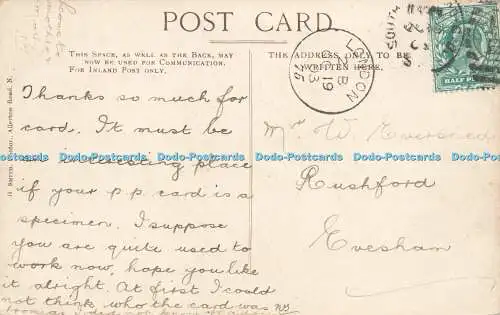 POST CARD.
THIS SPACE, AS WELL AS THE BACK, MAY
NOW BE USED FOR COMMUNICATION.
FOR INLAND POST ONLY.
THE ADDRESS ONLY TO BE
WRITTEN HERE.
LONDON
SOUTH
HALF PENNY
Thanks so much for
card. It must be
an interesting place
if your p.p. card is a
specimen. I suppose
you are quite used to
work now, hope you like
it alright. At first I could
not think who the card was
Mr W. Eversned
Rushford
Evesham
Dodo-Postcards Dodo-Postcards Dodo-Postcards Dodo-Postcards Dodo-Postcards